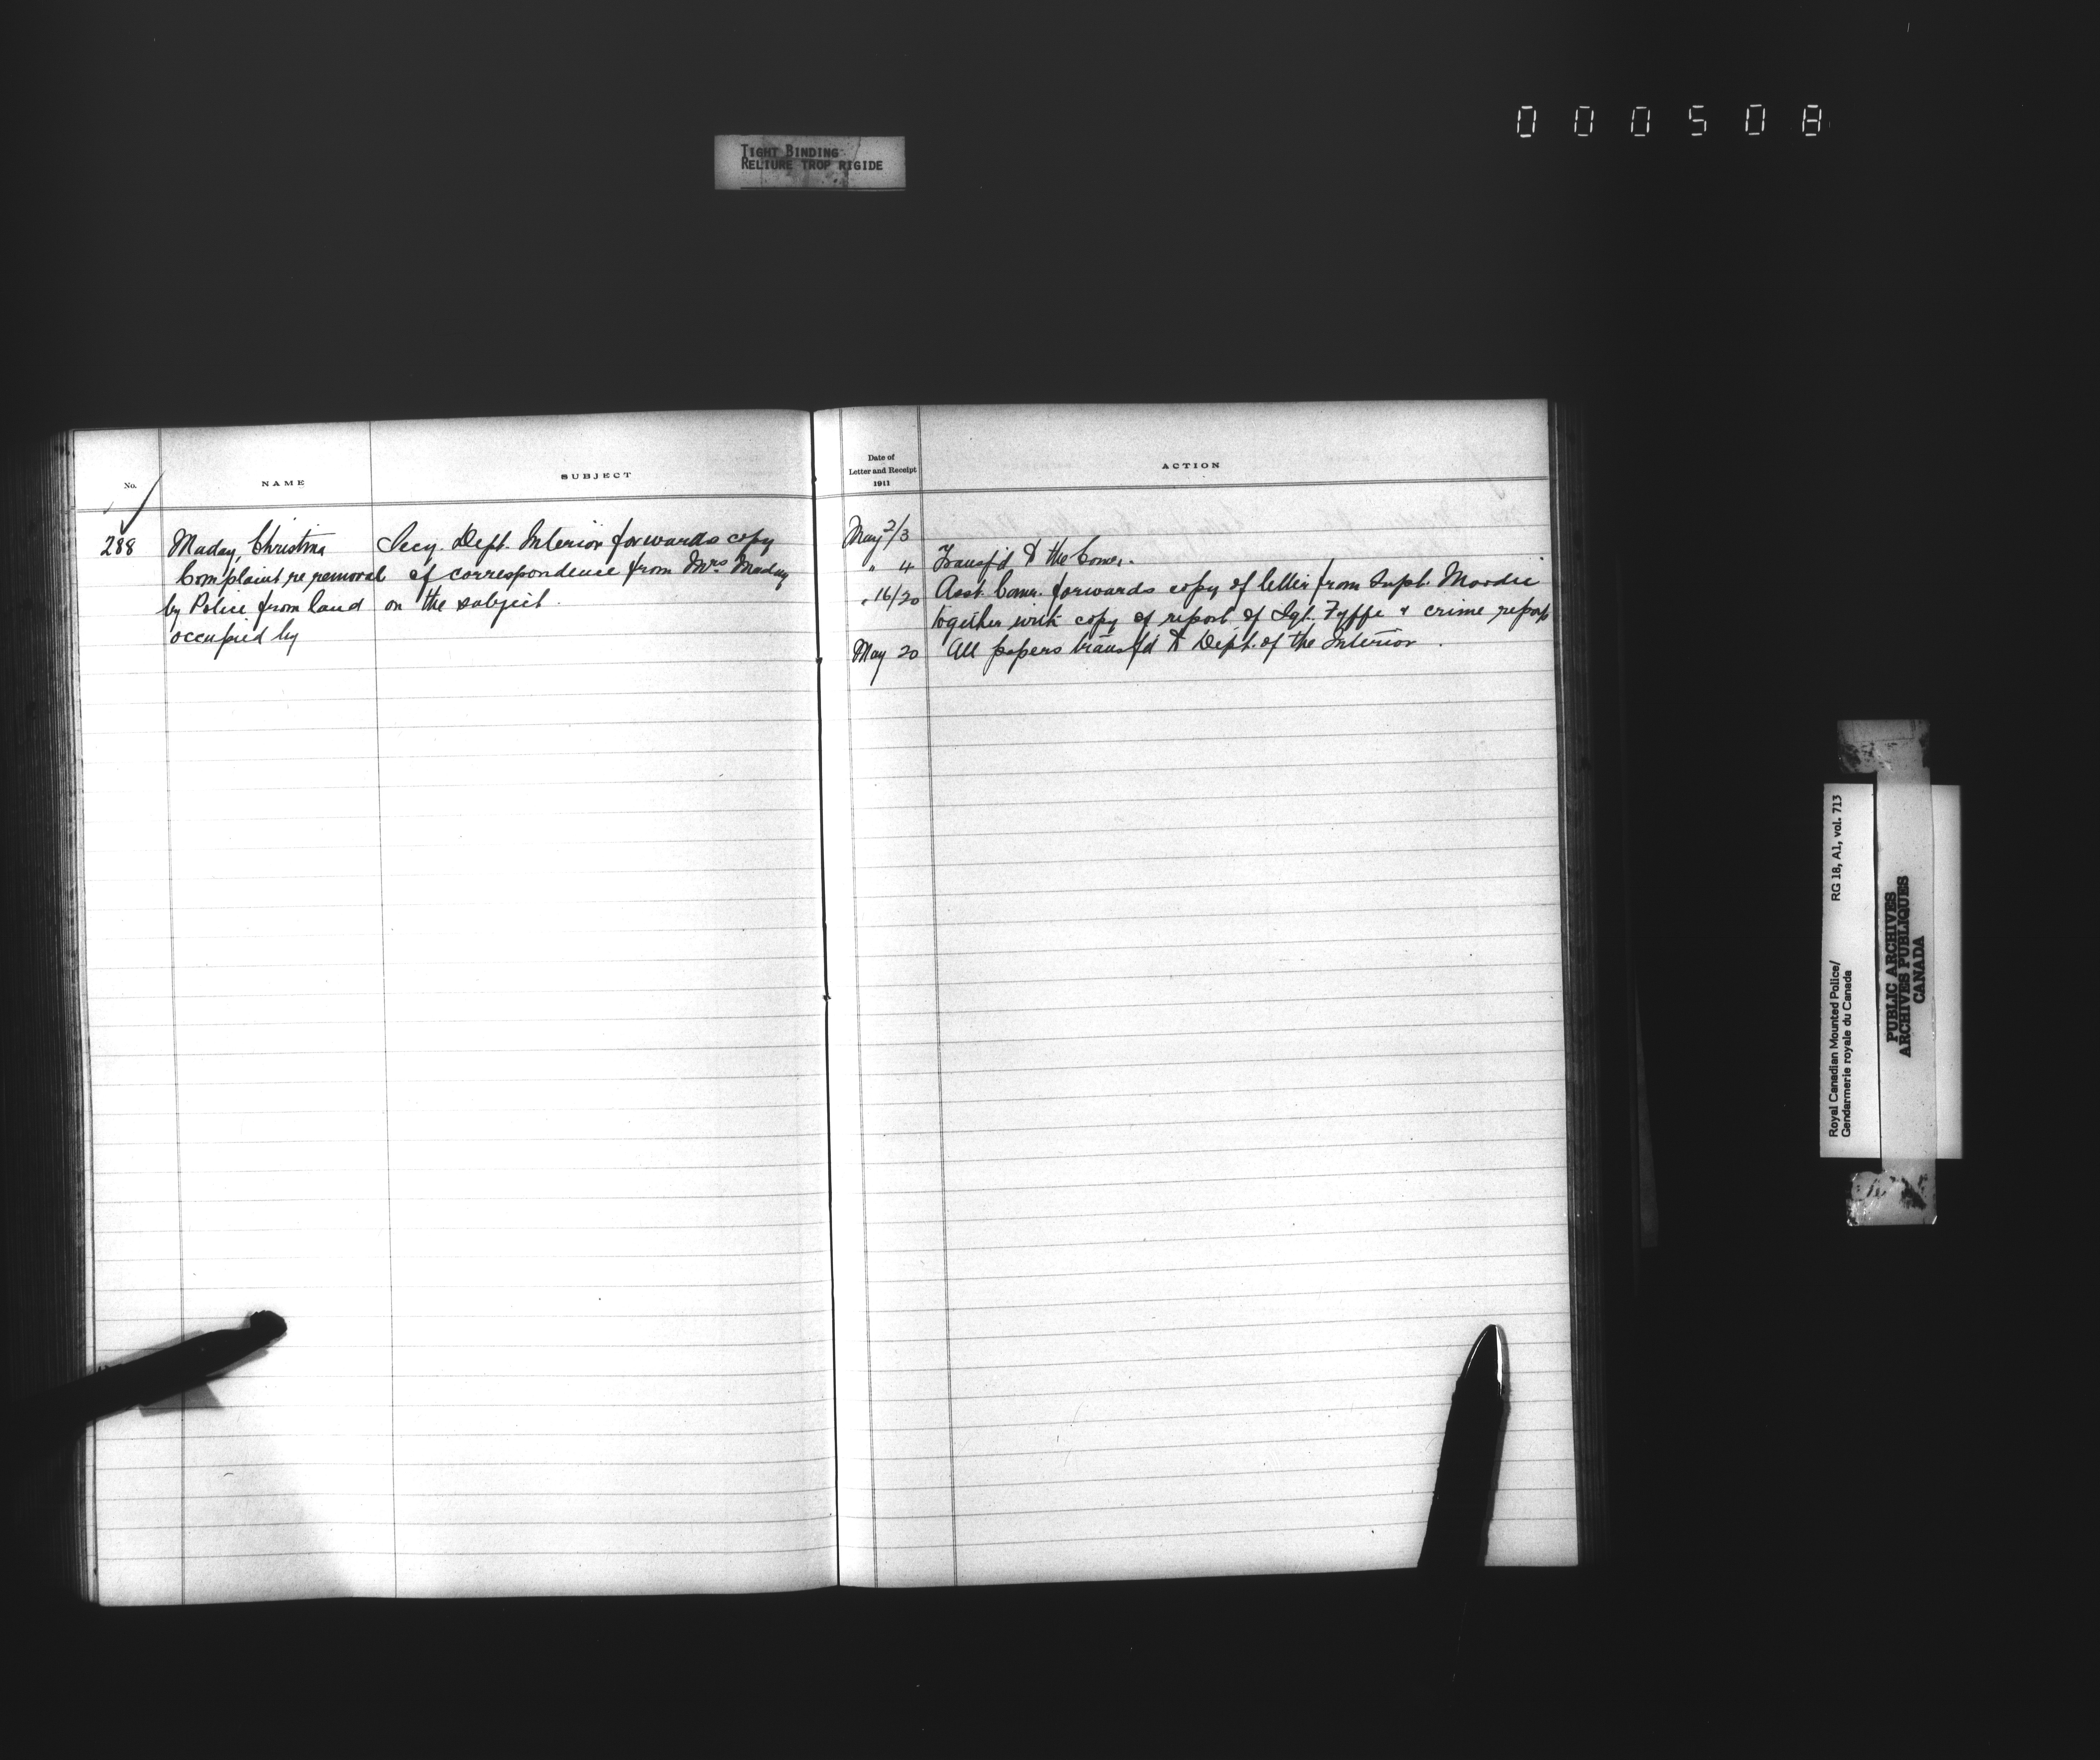 000508
TIGHT BINDING
RELIURE TROP RIGIDE
No.
NAME
SUBJECT
Date of
Letter and Receipt
1911
ACTION
288
Maday, Christina
Complaint re removal
by Police from land
occupied by
Secy. Dept. Interior forwards copy
of correspondence from Mrs Maday
on the subject.
May 2/3
" 4 Transf'd to the Comr.
" 16/20 Asst. Comr. forwards copy of letter from Supt. Moodie
together with copy of report of Sgt. Fyffe & crime report
May 20 All papers transf'd to Dept. of the Interior.
Royal Canadian Mounted Police/
Gendarmerie royale du Canada
RG 18, A1, vol. 713
PUBLIC ARCHIVES
ARCHIVES PUBLIQUES
CANADA